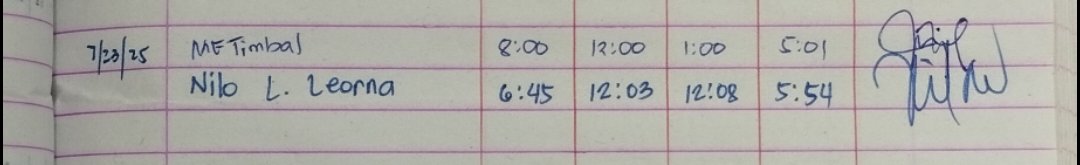 7/23/25 ME Timbal 8:00 12:00 1:00 5:01
Nilo L. Leorna 6:45 12:03 12:08 5:54